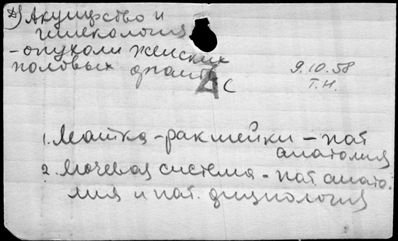 Акушерство и
гинекология
- опухоли женских
половых органов
Ас
9.10.58
Т.Н.
1. Матка - рак шейки - пат.
анатомия
2. Мочевая система - пат. анато-
мия и пат. физиология